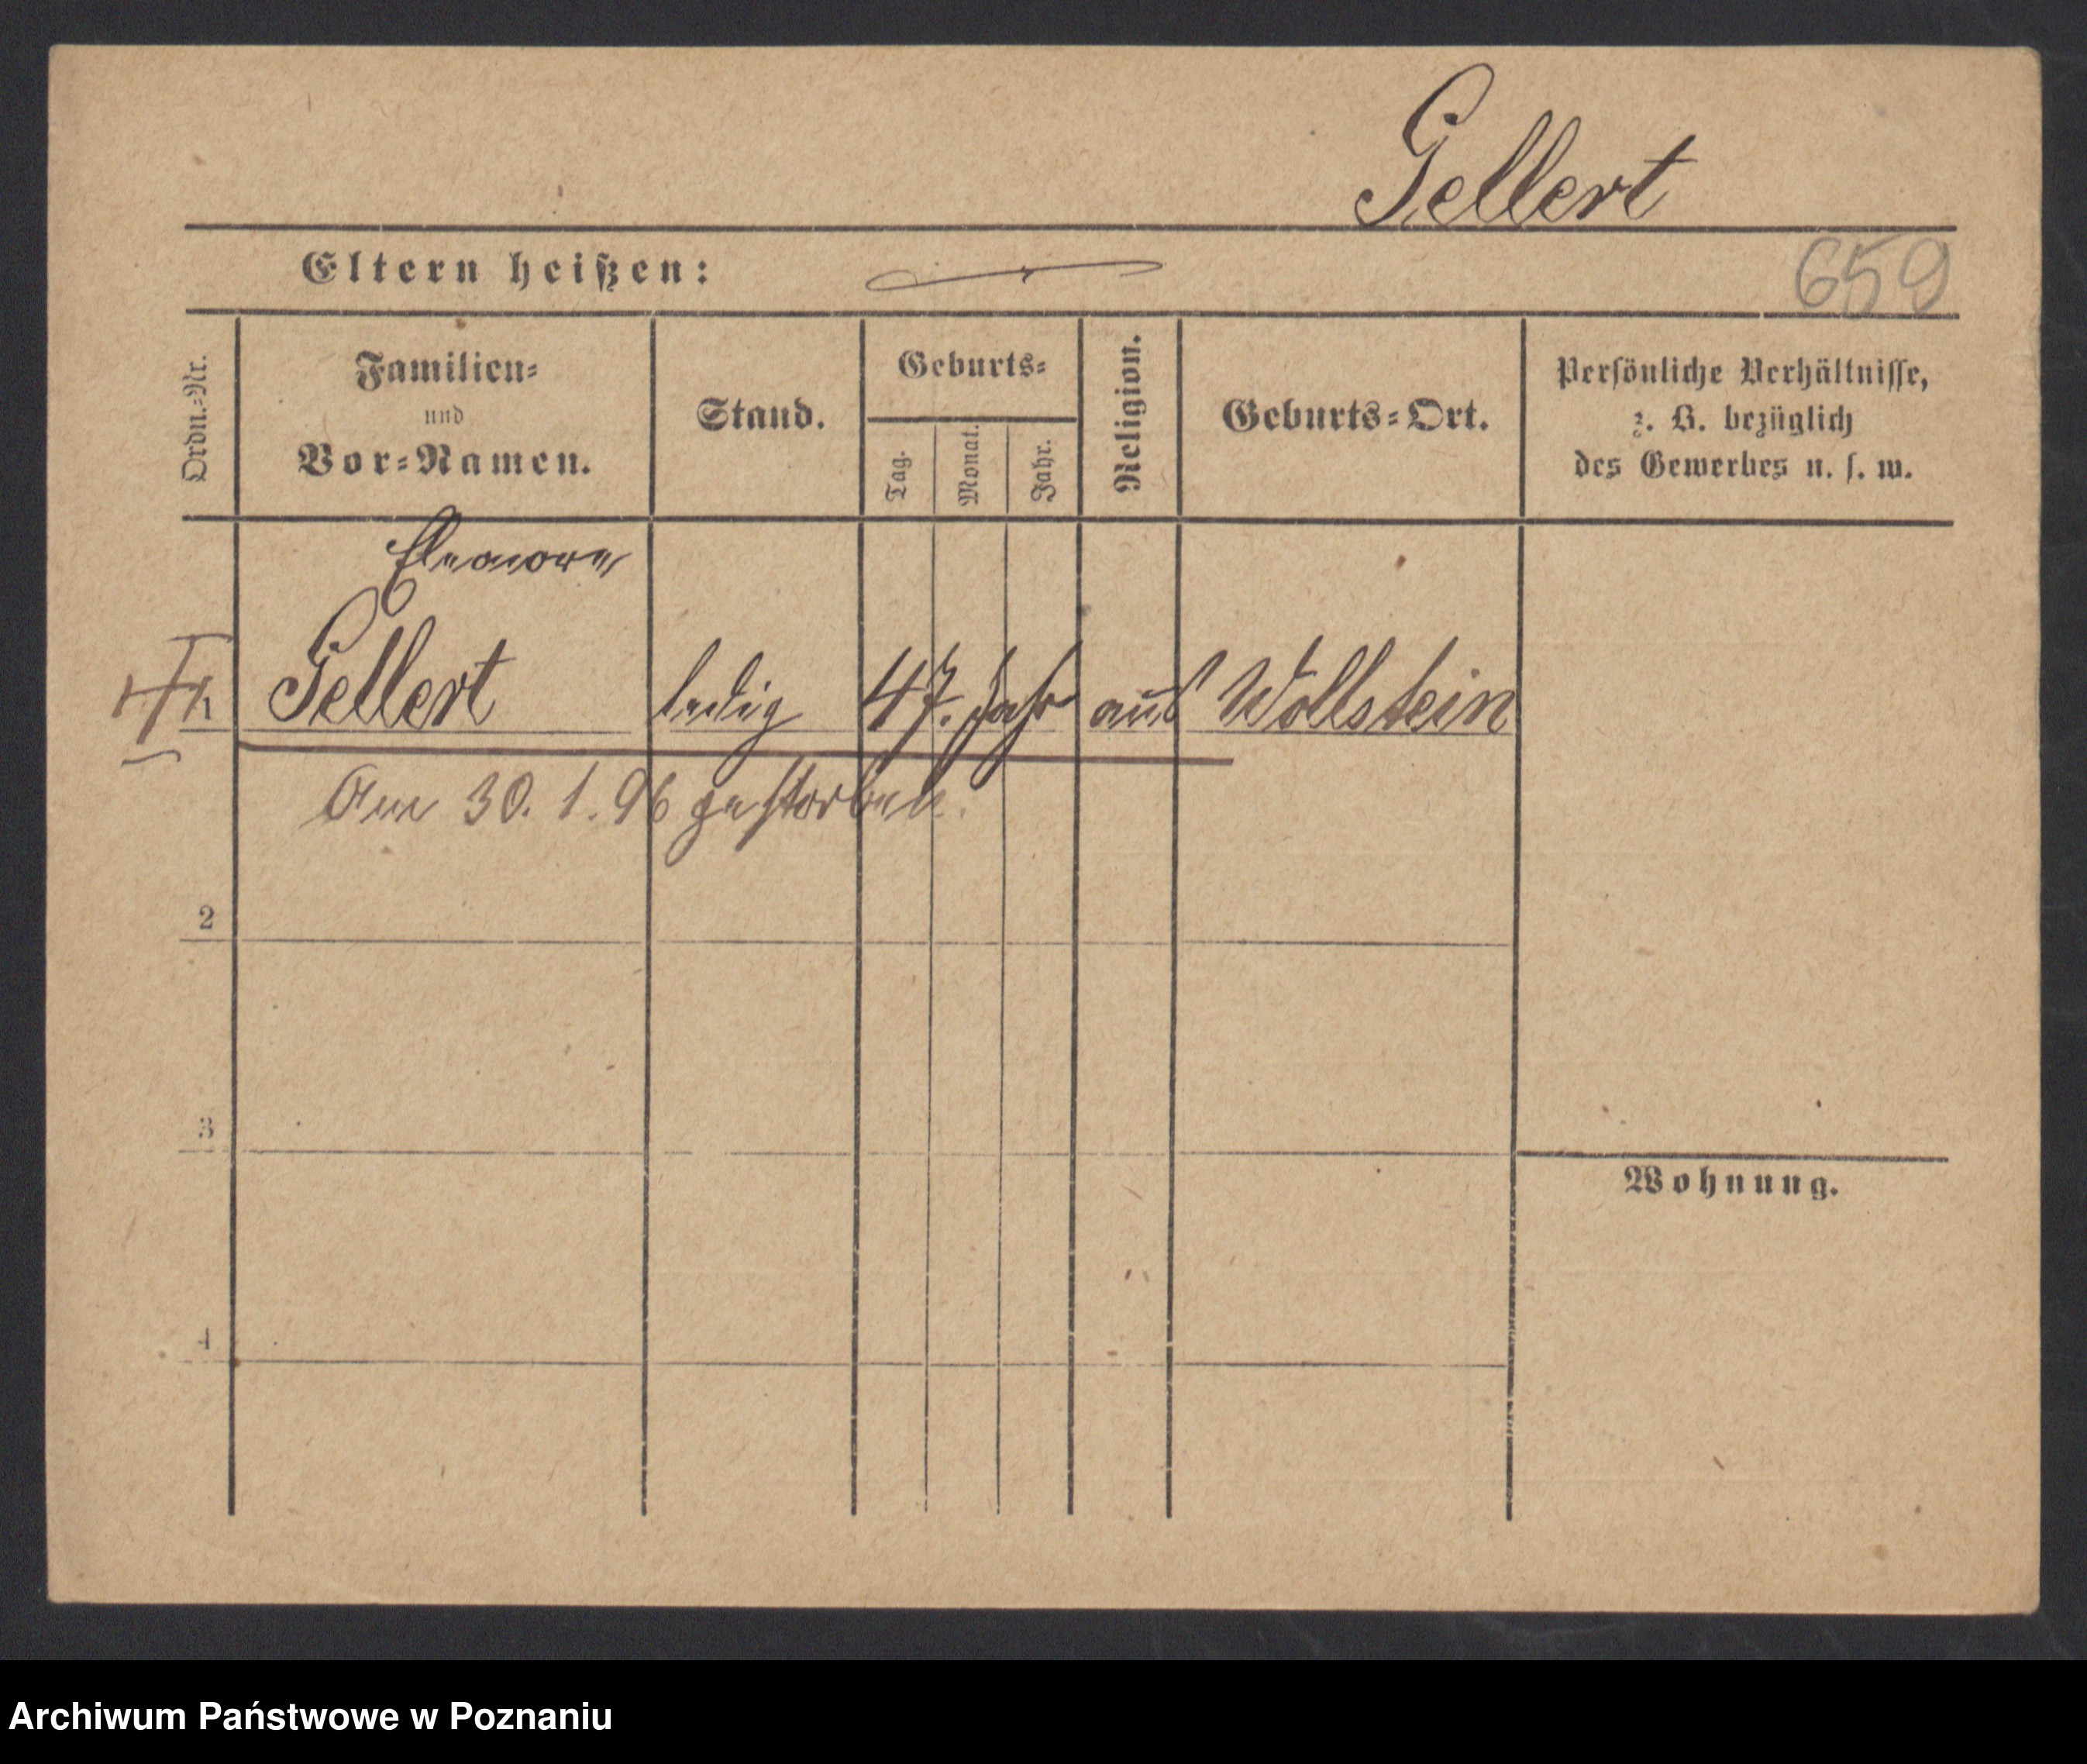 Gellert
Eltern heißen: —
659
Ordn.-Nr.
Familien-
und
Vor-Namen.
Stand.
Geburts-
Tag.
Monat.
Jahr.
Religion.
Geburts-Ort.
Persönliche Verhältnisse,
z. B. bezüglich
des Gewerbes u. s. w.
Eleonore
1 Gellert ledig 47. Jahr aus Wollstein
Am 30. 1. 96 gestorben.
2
3
Wohnung.
4
Archiwum Państwowe w Poznaniu